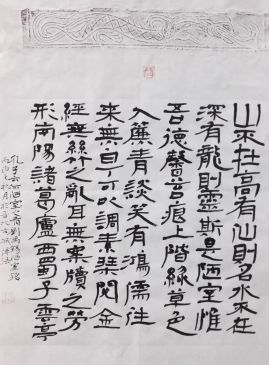 山不在高有仙則名水不在
深有龍則靈斯是陋室惟
吾德馨苔痕上階綠草色
入簾青談笑有鴻儒往
來無白丁可以調素琴閱金
經無絲竹之亂耳無案牘之勞
形南陽諸葛廬西蜀子雲亭
孔子云何陋之有劉禹錫陋室銘